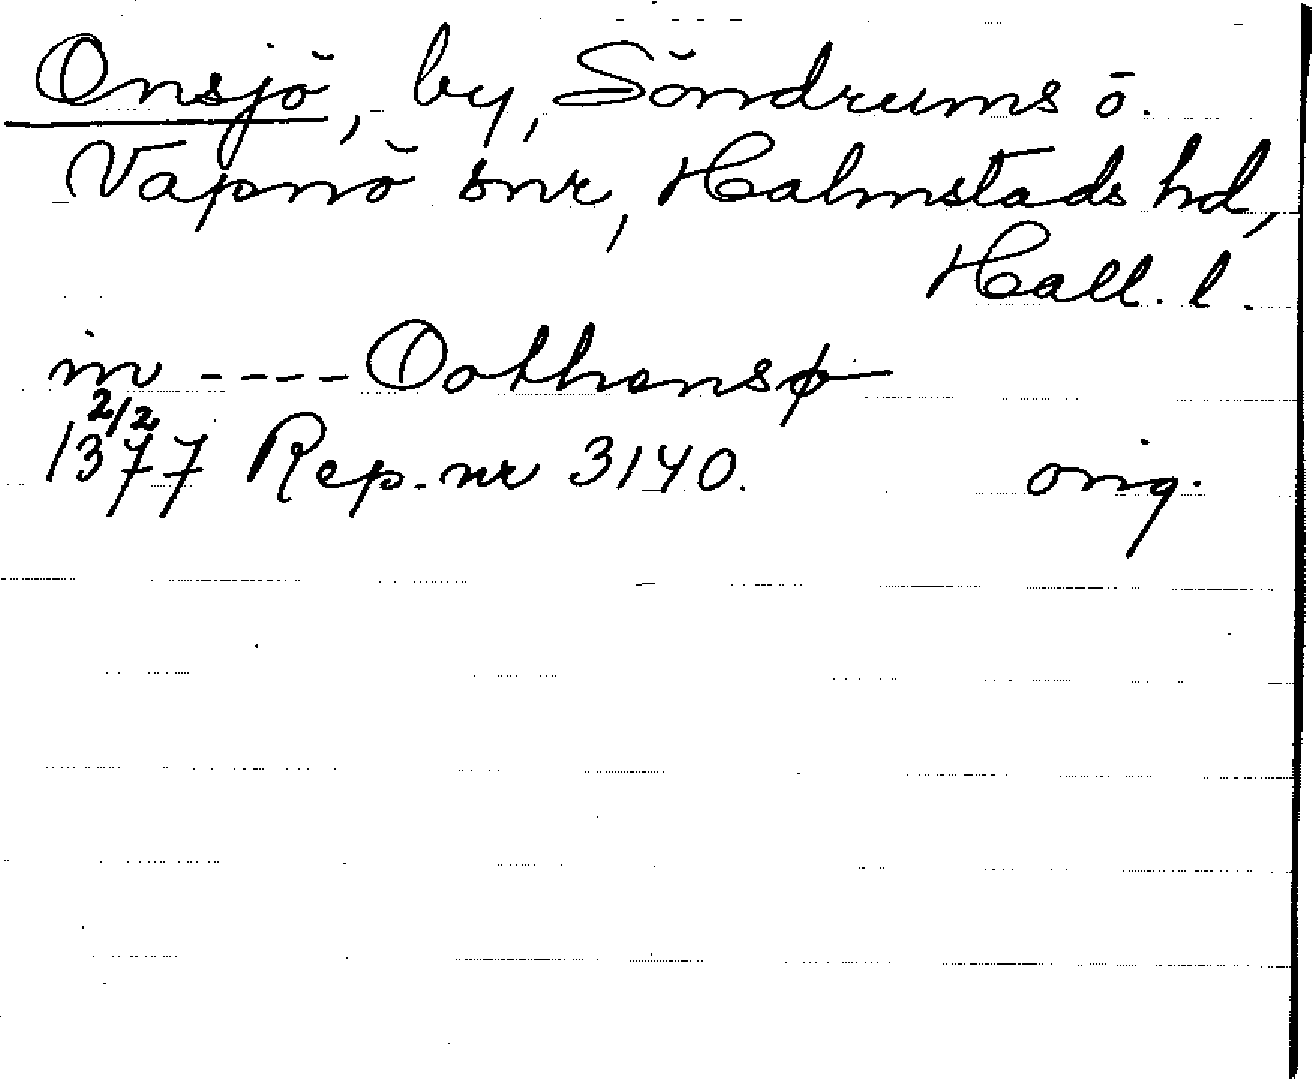 Onsjö, by, Söndrums ö.
Vapnö snr, Halmstads hd,
Hall. l.
in ---- Oothensø
2/2
1377 Rep. nr 3140. orig.